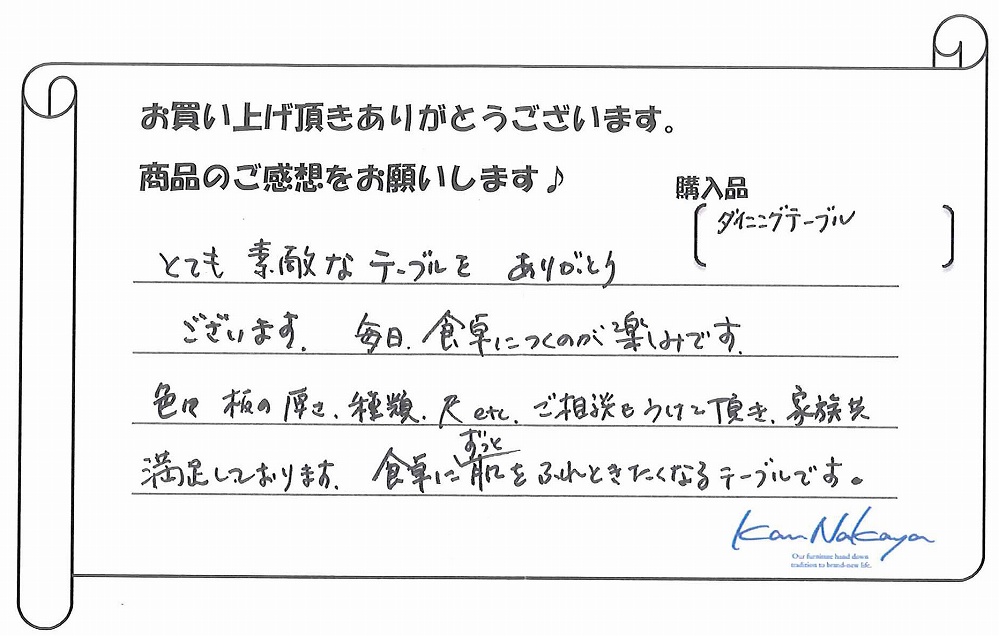 お買い上げ頂きありがとうございます。
商品のご感想をお願いします♪
購入品
ダイニングテーブル
とても 素敵な テーブルを ありがとう
ございます。 毎日、食卓につくのが楽しみです。
色々 板の厚さ、種類、尺 etc. ご相談もうけて頂き、家族共
満足しております。 食卓にずっと肌をふれときたくなるテーブルです。
Kan Nakaya
Our furniture hand down
tradition to brand-new life.